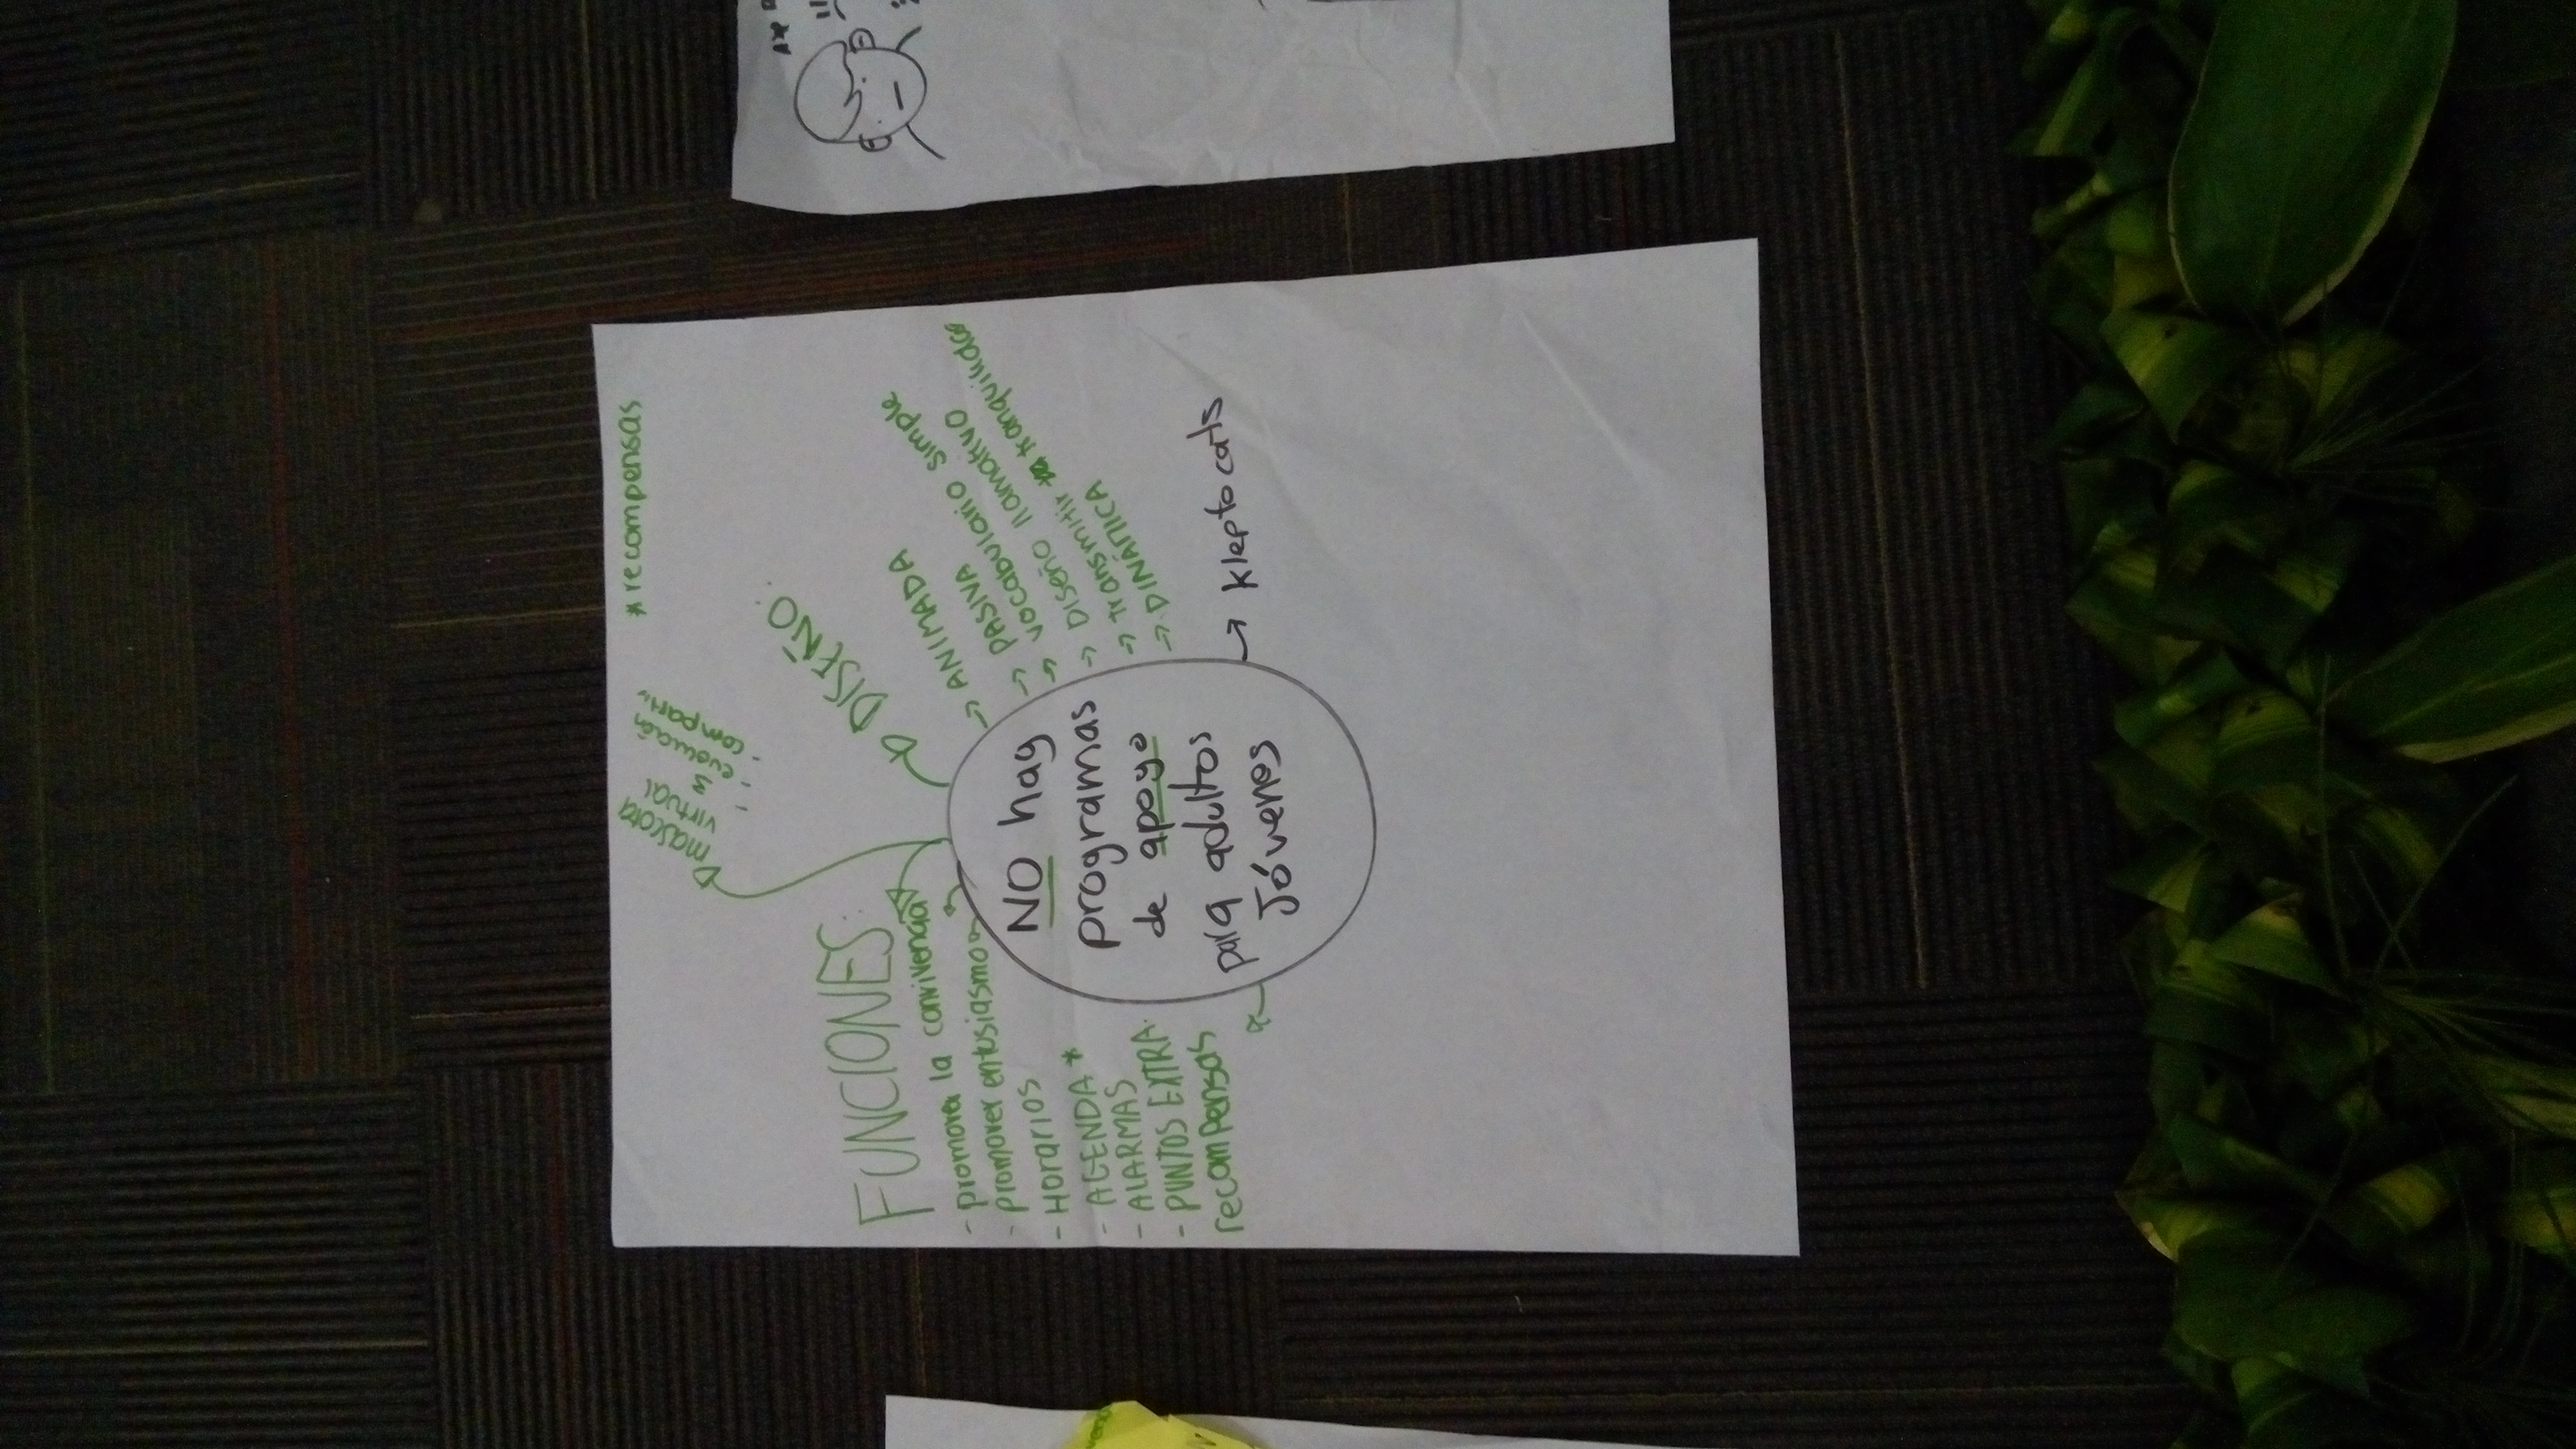 * recompensas
mascota
virtual
- 3
- evolución
- compartir
DISEÑO:
→ ANIMADA
→ PASIVA
→ vocabulario simple
→ Diseño llamativo
→ transmitir tranquilidad
→ DINÁMICA
FUNCIONES:
- promover la convivencia
- promover entusiasmo
- Horarios
- AGENDA *
- ALARMAS
- PUNTOS EXTRA
recompensas
NO hay
programas
de apoyo
para adultos
Jóvenes
→ Kleptocarls